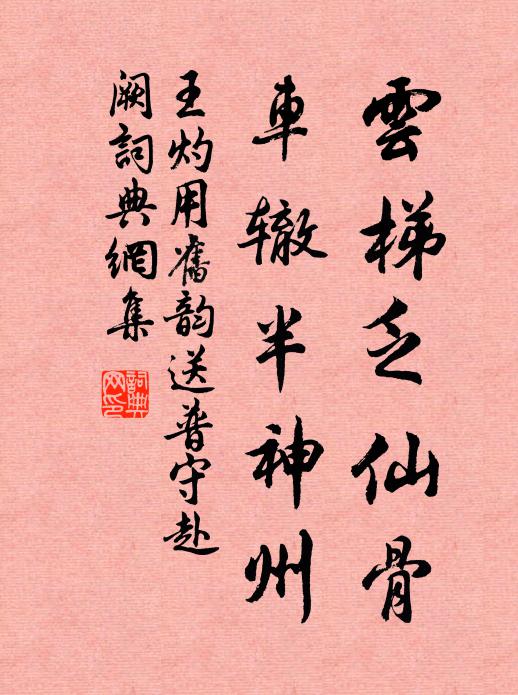 雲梯乏仙骨
車辙半神州
王灼用舊韵送普守赴
阙詞典網集
詞典网印